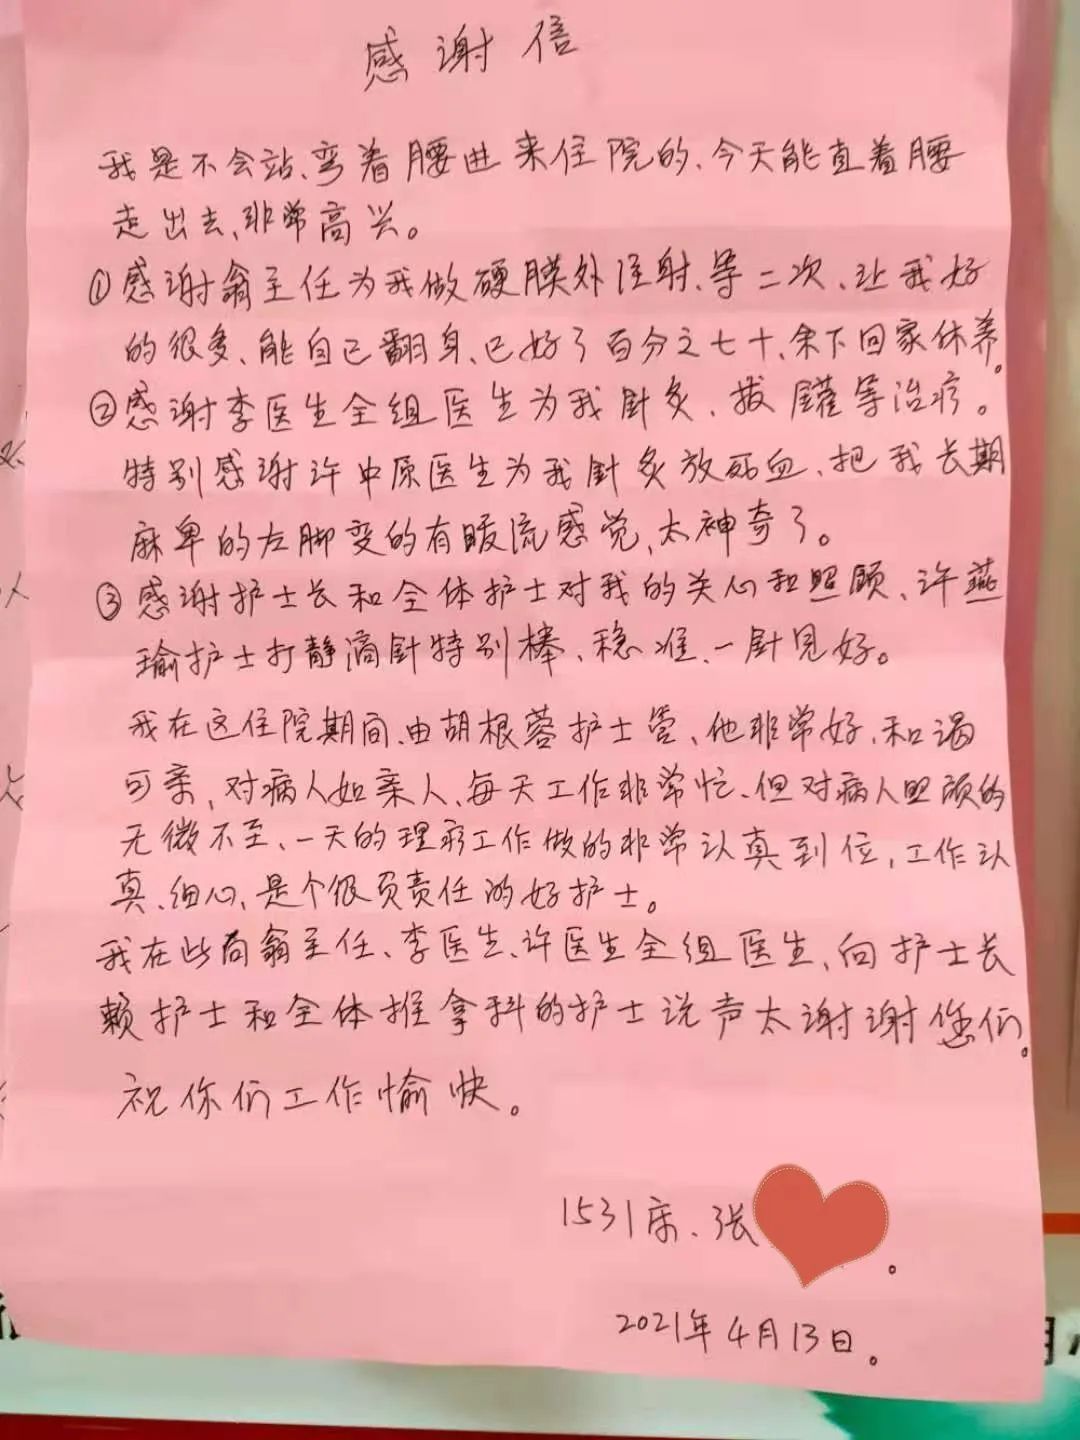 感谢信
我是不会站、弯着腰进来住院的、今天能直着腰
走出去、非常高兴。
①感谢翁主任为我做硬膜外注射、等二次、让我好
的很多、能自己翻身、已好了百分之七十、余下回家休养。
②感谢李医生全组医生为我针灸、拔罐等治疗。
特别感谢许中原医生为我针灸放死血、把我长期
麻卑的左脚变的有暖流感觉、太神奇了。
③感谢护士长和全体护士对我的关心和照顾、许燕
瑜护士打静滴针特别棒、稳准、一针见好。
我在这住院期间、由胡根蓉护士管、他非常好、和谒
可亲，对病人如亲人、每天工作非常忙、但对病人照顾的
无微不至、一天的理疗工作做的非常认真到位，工作认
真、细心、是个很负责任的好护士。
我在此向翁主任、李医生、许医生全组医生、向护士长
赖护士和全体推拿科的护士说声太谢谢您们。
祝你们工作愉快。
1531床、张
。
2021年4月13日。